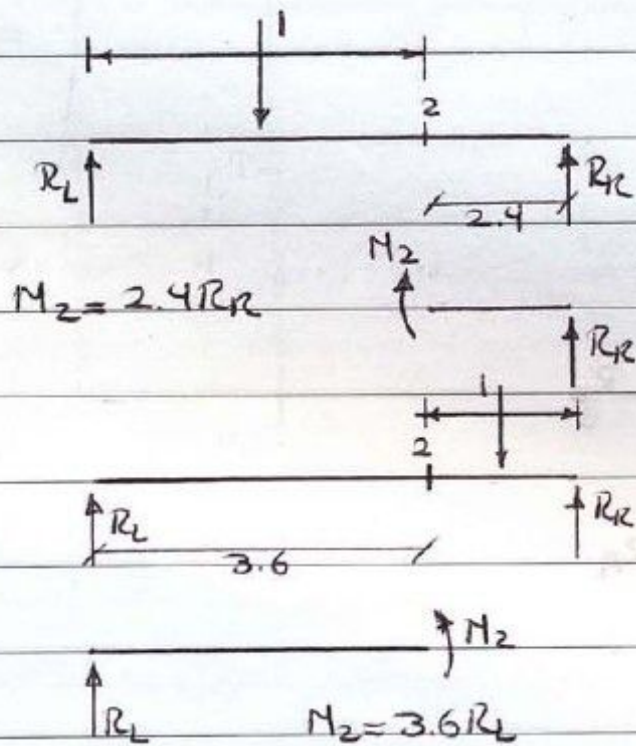 1
2
RL RR
2.4
M2
M2 = 2.4RR
RR
1
2
RL RR
3.6
M2
RL M2 = 3.6RL